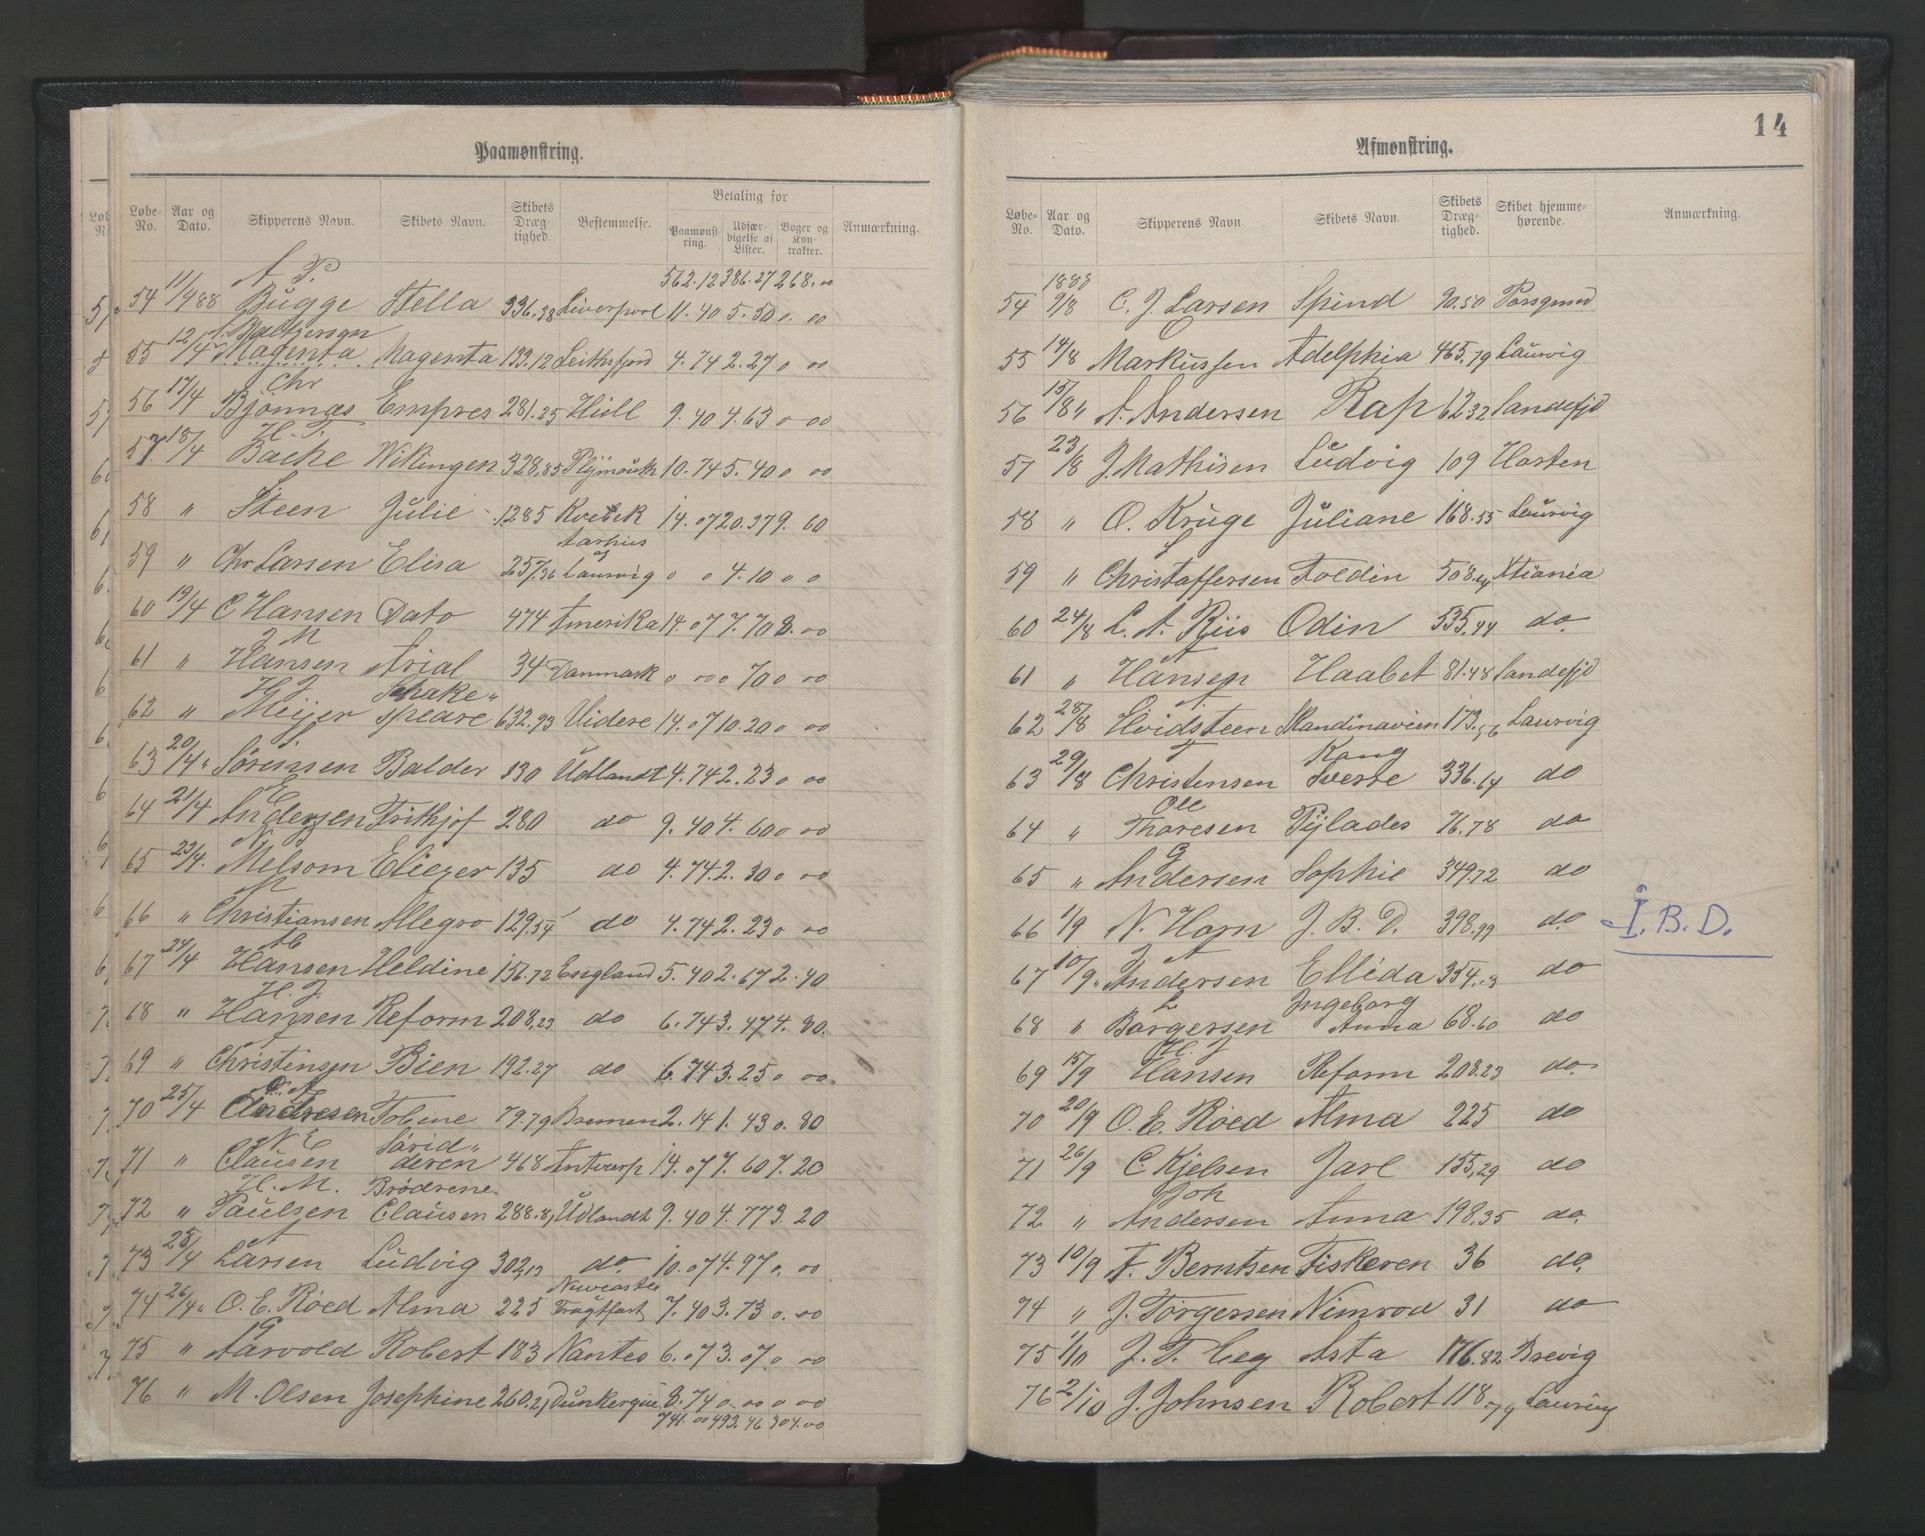 Paamønstring.
Løbe-No. Aar og Dato. Skipperens Navn. Skibets Navn. Skibets Dræg-tighed. Bestemmelse. Betaling for Paamønst-ring. Udfær-digelse af Lister. Bøger og Kon-trakter. Anmærkning.
562.12 386.27 268.00
54 11/4 88 A P. Bugge Stella 336.38 Liverpool 11.40 5.50 0.00
55 12/4 Magenta Magenta 133.12 Leithsfjord 4.74 2.27 0 00
56 17/4 Chr Bjönnæs Empres 281.25 Hull 9.40 4.63 0 00
57 18/4 H. T. Bache Wikingen 328,85 Plÿmouth 10.74 5.40 0 00
58 " Steen Julie 1285 Kvebek 14.07 20.37 9.60
59 " Chr Larsen Elisa 257.36 Aarhus og Laurvig 0 0 4.10 0 0
60 19/4 C Hansen Dato 474 Amerika 14.07 7.70 8.00
61 " J M Hansen Arial 34 Danmark 0 00 0 70 0 00
62 " H J Meijer Shake" speare 632.93 Videre 14.07 10.20 0 00
63 20/4 " Sörensen Balder 130 Udlandt 4.74 2.23 0 00
64 21/4 E Andersen Frithjof 280 do 9.40 4.60 0 00
65 23/4. Melsom Eliezer 135 do 4.74 2.30 0 00
66 " M Christiansen Allegro 129.54 do 4.74 2.23 0 00
67 24/4 Ab Hansen Heldine 156.72 England 5.40 2.67 2.40
68 " H. J. Hansen Reform 208,23 do 6.74 3.47 4.80.
69 " Christensen Bien 192.27 do 6.74 3.25 0 00.
70 25/4 C. A. Andresen Tobine 79.79 Bremen 2.14 1.43 0.80
71 " N E Clausen Sørid" deren 468 Antverp 14.07 7.60 7.20
72 " H. M. Paulsen Brødrene Clausen 288.81 Udlandt 9.40 4.77 3.20
73 25/4 A Larsen Ludvig 302,13 do 10.07 4.97 0.00
74 26/4 " O. E. Röed Alma 225 Newcastle Fragtfart 7.40 3.73 0.00
75 " G Aarvold Robert 183 Nantes 6.07 3.07 0 00
76 " M. Olsen Josephine 260.21 Dunkerque 8.74 0.00 0 00
741.00 493.46 304.00
14
Afmønstring.
Løbe-No. Aar og Dato. Skipperens Navn. Skibets Navn. Skibets Dræg-tighed. Skibet hjemme-hørende. Anmærkning.
54 1888 9/8 C. J. Larsen Spind 90.50 Porsgrund
55 14/8 C Markussen Adelphia 465.79 Laurvig
56 15/8 " A. Andersen Rap 62.32 Sandefjd
57 23/8 J. Mathisen Ludvig 109 Horten
58 " O. Kruge Juliane 168.55 Laurvig
59 " L Christoffersen Foldin 508.44 Xtiania
60 24/8 L. A. Riis Odin 535.44 do.
61 " A Hansen Haabet 81.48 Sandefjd
62 28/8 A. Hvidsteen Skandinavien 173.56 Laurvig
63 29/8 T Christensen Kong Sverre 336.64 do
64 " Ole Thoresen Pÿlades 76.78 do
65 " G Andersen Sophie 349.72 do
66 1/9 N. Horn J. B. D. 398.99 do I. B. D.
67 10/9 " J A Andersen Ellida 354.3 do
68 " L Borgersen Ingeborg Anna 68.60 do
69 15/9 H. J Hansen Reform 208.23 do.
70 20/9 O. E. Röed Alma 225 do
71 26/9 C. Kjelsen Jarl 155,29 do
72 " Joh Andersen Anna 198.35 do.
73 10/9 A. Berntsen Fiskeren 36 do.
74 " J. Torgersen Nimrod 31 do
75 1/10 J. T. Eeg Asta 176.82 Brevig
76 2/10 J. Johnsen Robert 118.79 Laurvig